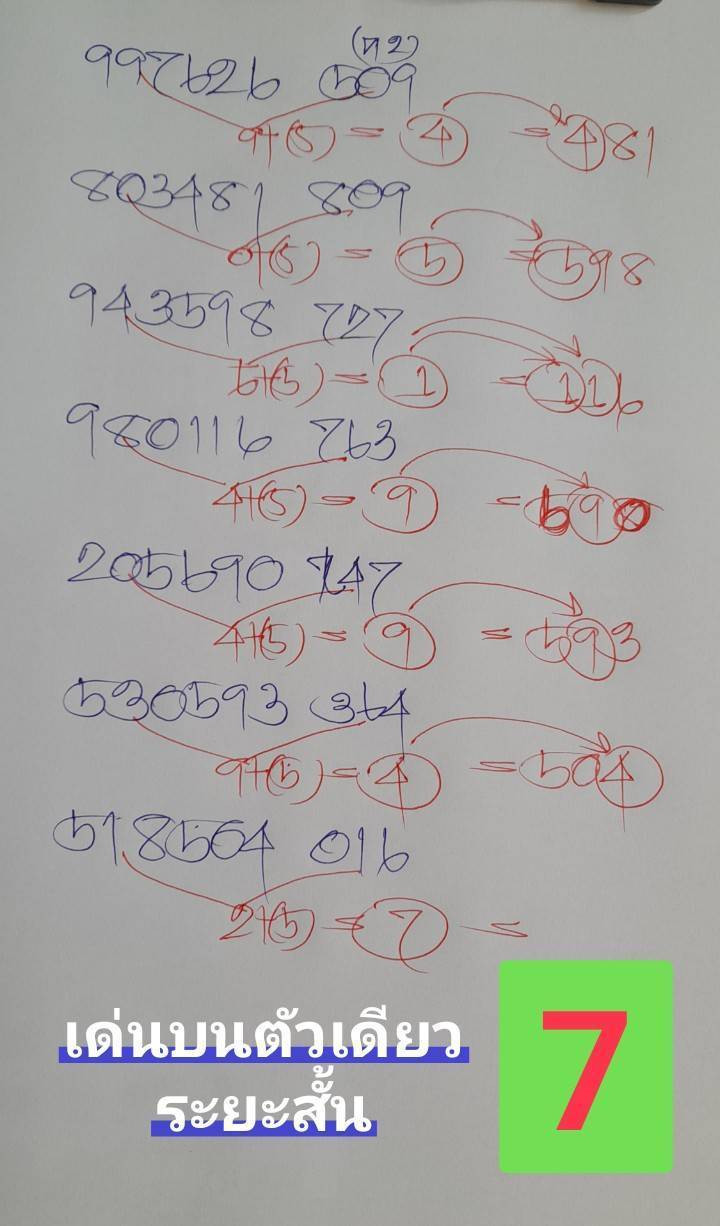 (ท 2)
997626 509
9+(5) = 4 = 481
803481 809
0+(5) = 5 = 598
943598 727
6+(5) = 1 = 116
980116 763
4+(5) = 9 = 690
205690 747
4+(5) = 9 = 593
530593 364
9+(5) = 4 = 504
518504 016
2+(5) = 7 =
เด่นบนตัวเดียว
ระยะสั้น
7